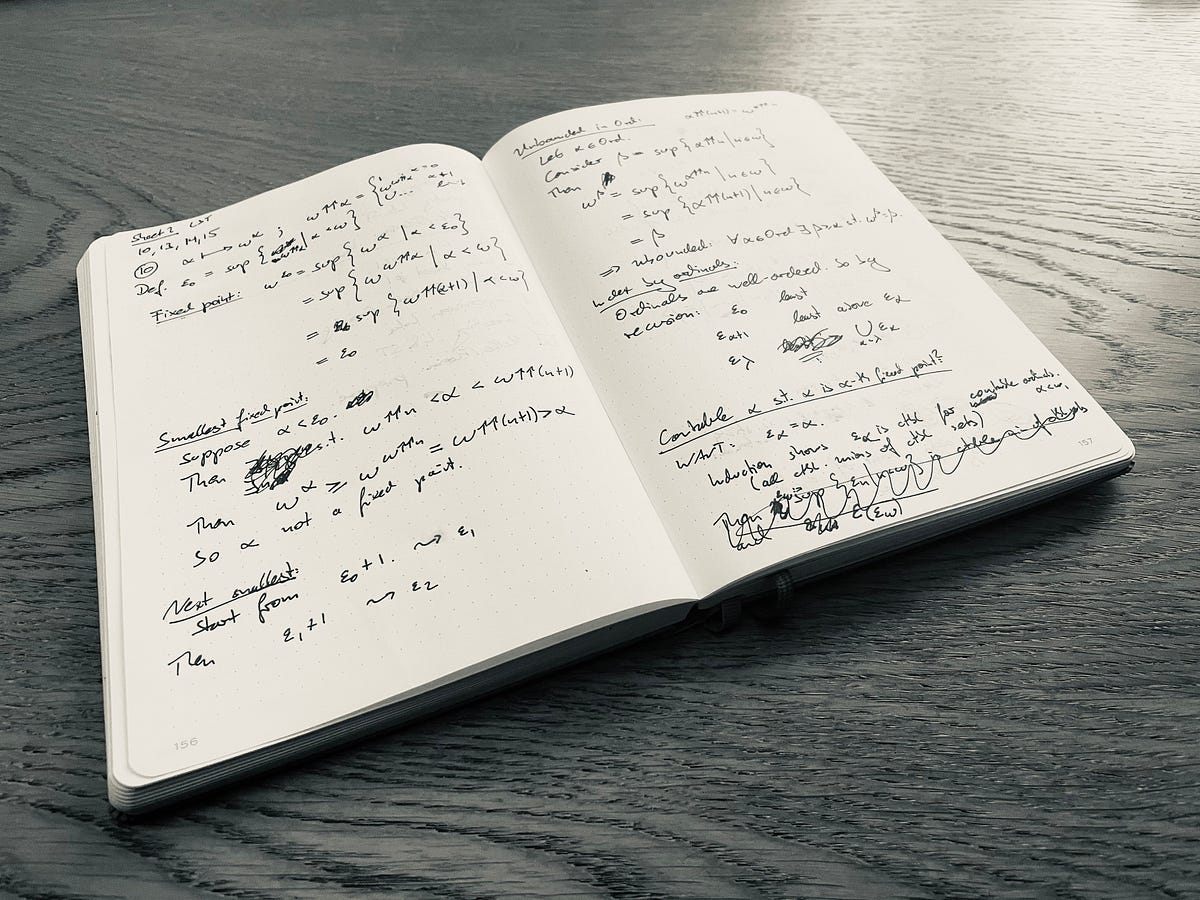 Sheet 2 LST
10, 13, 14, 15
⑩ α ↦ ω^α ; ω↑↑α = { 1 α=0
ω^{ω↑↑α} α+1
∪... lim
Def. ε₀ = sup { ω↑↑α | α < ω}
Fixed point: ω^ε₀ = sup{ω^α | α < ε₀}
= sup{ω^{ω↑↑α} | α < ω}
= sup {ω↑↑(α+1) | α < ω}
= ε₀
Smallest fixed point:
Suppose α < ε₀.
Then st. ω↑↑n < α < ω↑↑(n+1)
Then ω^α ⩾ ω^{ω↑↑n} = ω↑↑(n+1) > α
So α not a fixed point.
Next smallest:
Start from ε₀+1. ⇝ ε₁
Then ε₁+1 ⇝ ε₂
156
Unbounded in Ord:
α↑↑(n+1) = ω^{α↑↑n}
Let α ∈ Ord.
Consider β = sup{α↑↑n | n∈ω}
Then ω^β = sup{ω^{α↑↑n} | n∈ω}
= sup {α↑↑(n+1) | n∈ω}
= β
⇒ unbounded: ∀α∈Ord ∃β>α st. ω^β=β.
Index by ordinals:
Ordinals are well-ordered. So by
recursion: ε₀ least
ε_{α+1} least above ε_α
ε_λ ∪ ε_α
α<λ
Countable α st. α is α-th fixed point?
WANT: ε_α = α.
Induction shows ε_α is ctbl for countable ordinals.
α<ω₁
(all ctbl. unions of ctbl sets)
Then sup {ε_n | n<ω} is
and ε(ε_ω)
157